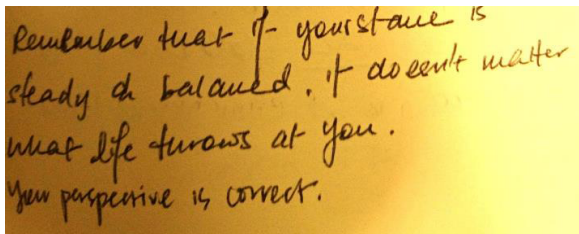 Remember that if your stance is
steady & balanced, it doesn't matter
what life throws at you.
Your perspective is correct.